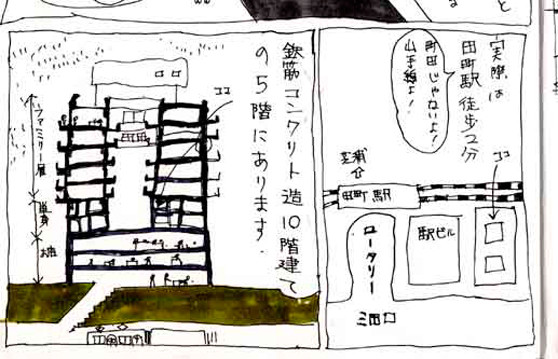 実際は
田町駅徒歩2分
町田じゃないよ!
山手線よ!
ココ
芝浦
口
田町駅
駅ビル
ロータリー
三田口
鉄筋コンクリト造10階建て
の5階にあります.
ココ
ファミリー層
単身